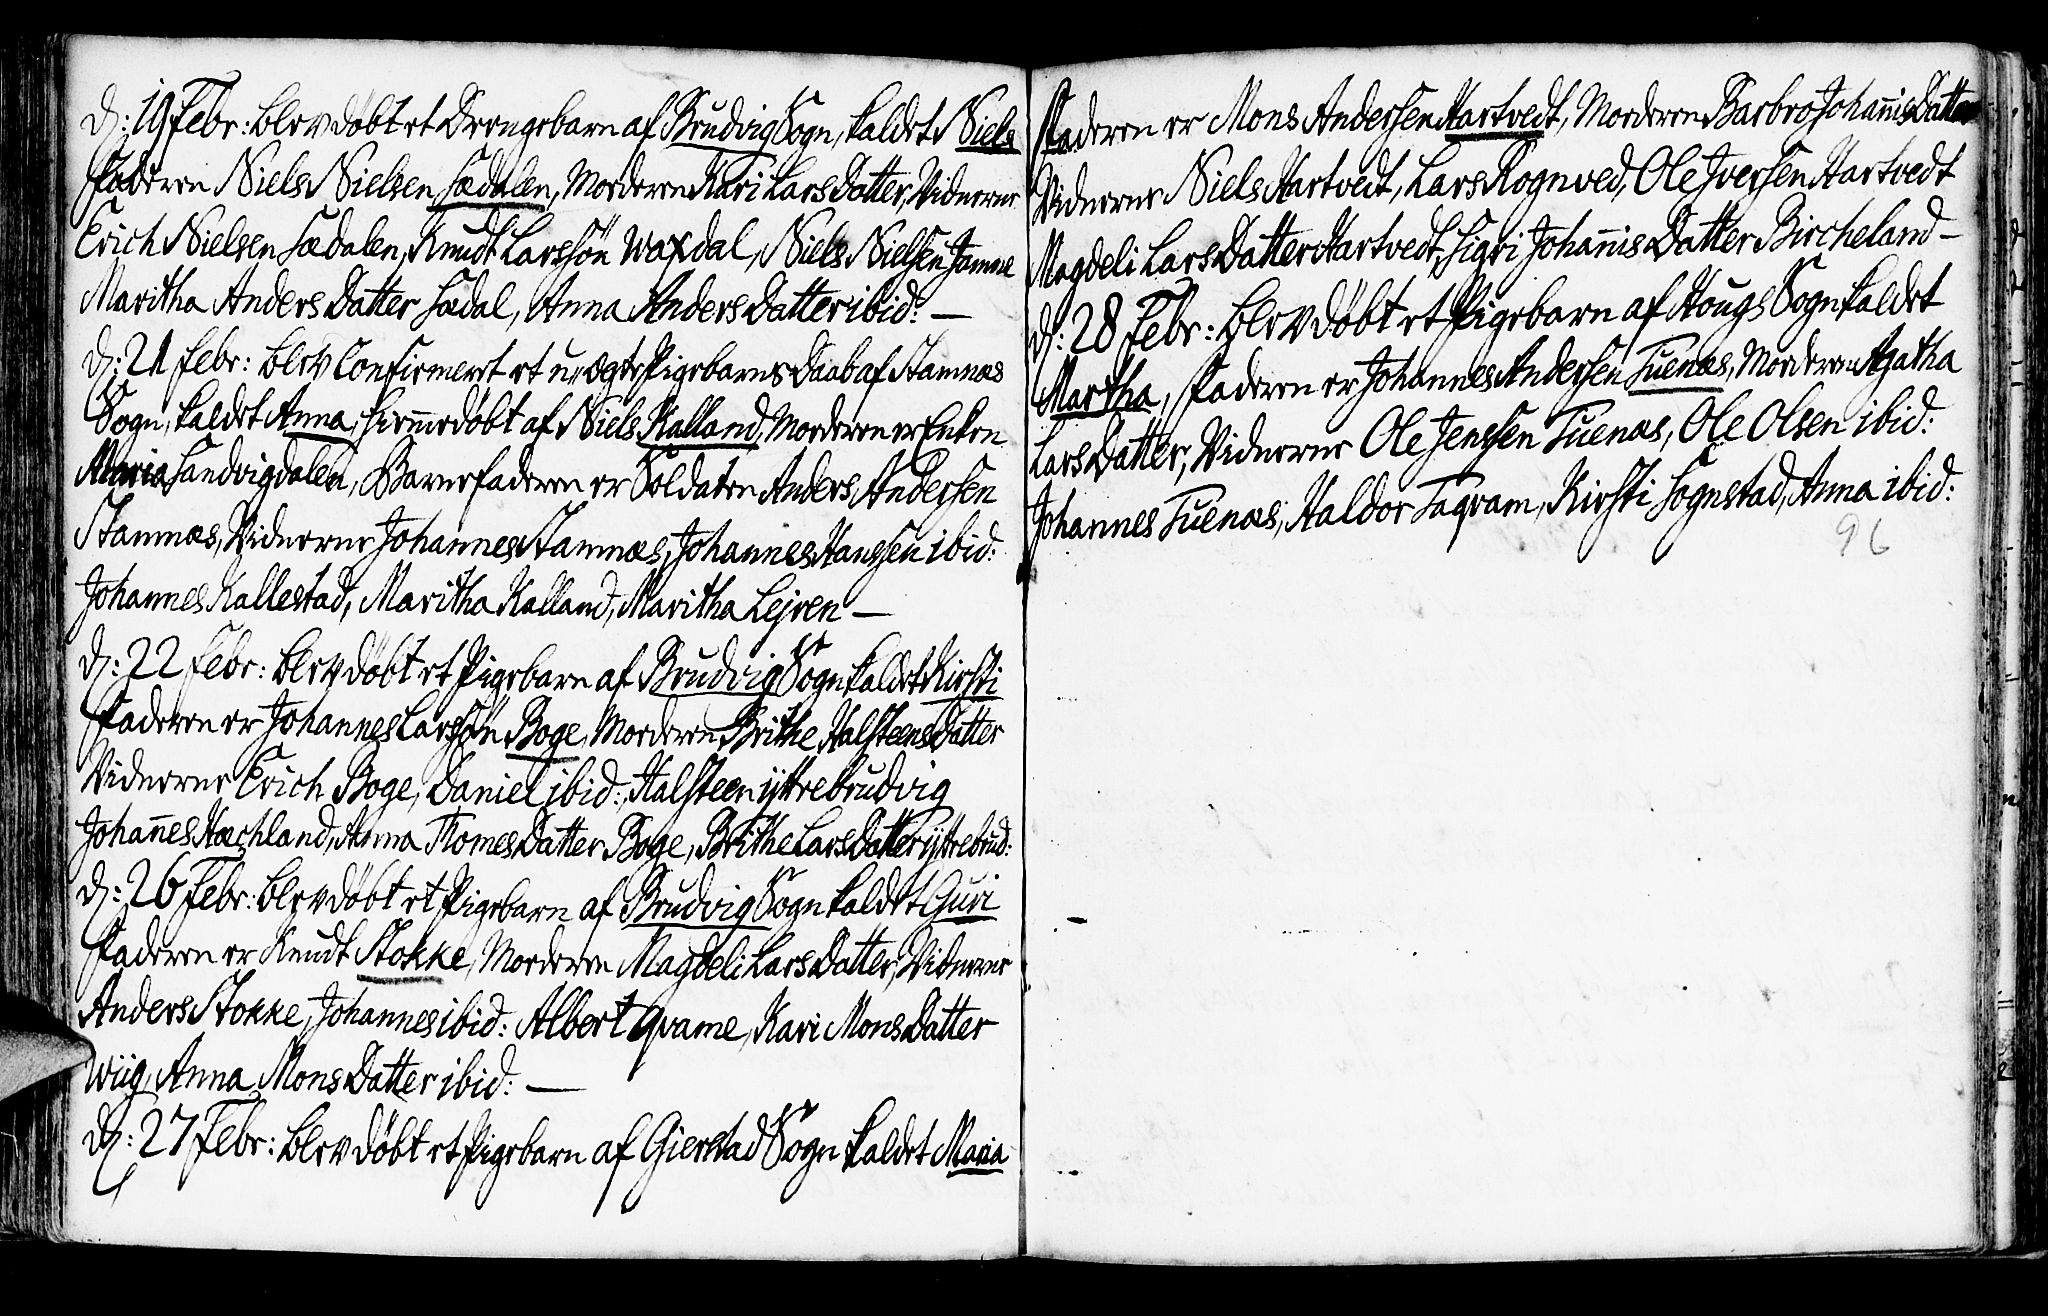 D: 19 Febr: blev døbt et Drengebarn af Brudvig Sogn, kaldet Niels
Faderen Niels Nielsen Sædalen, Moderen Kari Lars Datter, Vidnerne
Erich Nielsen Sædalen, Knudt Larssøn Waxdal, Niels Nielsen Jamne
Maritha Anders Datter Sædal, Anna Anders Datter ibid: —
D: 21 Febr: blev Confirmeret et uægte Pigebarns Daab af Stamnæs
Sogn, kaldet Anna, hiemmedøbt af Niels Kalland, Moderen er Enken
Maria Sandvigdalen, Barnefaderen er Soldaten Anders Andersen
Stamnæs, Vidnerne Johannes Stamnæs, Johannes Hanssen ibid:
Johannes Kallestad, Maritha Kalland, Maritha Lejren —
D: 22 Febr: blev døbt et Pigebarn af Brudvig Sogn kaldet Kirsti
Faderen er Johannes Larssøn Boge, Moderen Brithe Halsteens Datter
Vidnerne Erich Boge, Daniel ibid:, Halsteen yttrebrudvig
Johan̄es Hæchland, Anna Thomes Datter Boge, Brithe Lars Datter yttrebrud:
D: 26 Febr: blev døbt et Pigebarn af Brudvig Sogn kaldet Guri
Faderen er Knudt Stokke, Moderen Magdeli Lars Datter, Vidnerne
Anders Stokke, Johannes ibid: Albert Qvame, Kari Mons Datter
Wiig, Anna Mons Datter ibid: —
D: 27 Febr: blev døbt et Pigebarn af Gierstad Sogn kaldet Maria
Faderen er Mons Andersen Hartvedt, Moderen Barbro Johan̄is Datter
Vidnerne Niels Hartvedt, Lars Rognved, Ole Iversen Hartvedt
Magdeli Lars Datter Hartvedt, Sigri Johan̄is Datter Bircheland —
D: 28 Febr: blev døbt et Pigebarn af Hougs Sogn kaldet
Martha, Faderen er Johannes Andersen Tuenæs, Moderen Agatha
Lars Datter, Vidnerne Ole Jenssen Tuenæs, Ole Olsen ibid:
Johannes Tuenæs, Haldor Taqvam, Kirsti Sognstad, Anna ibid:
96